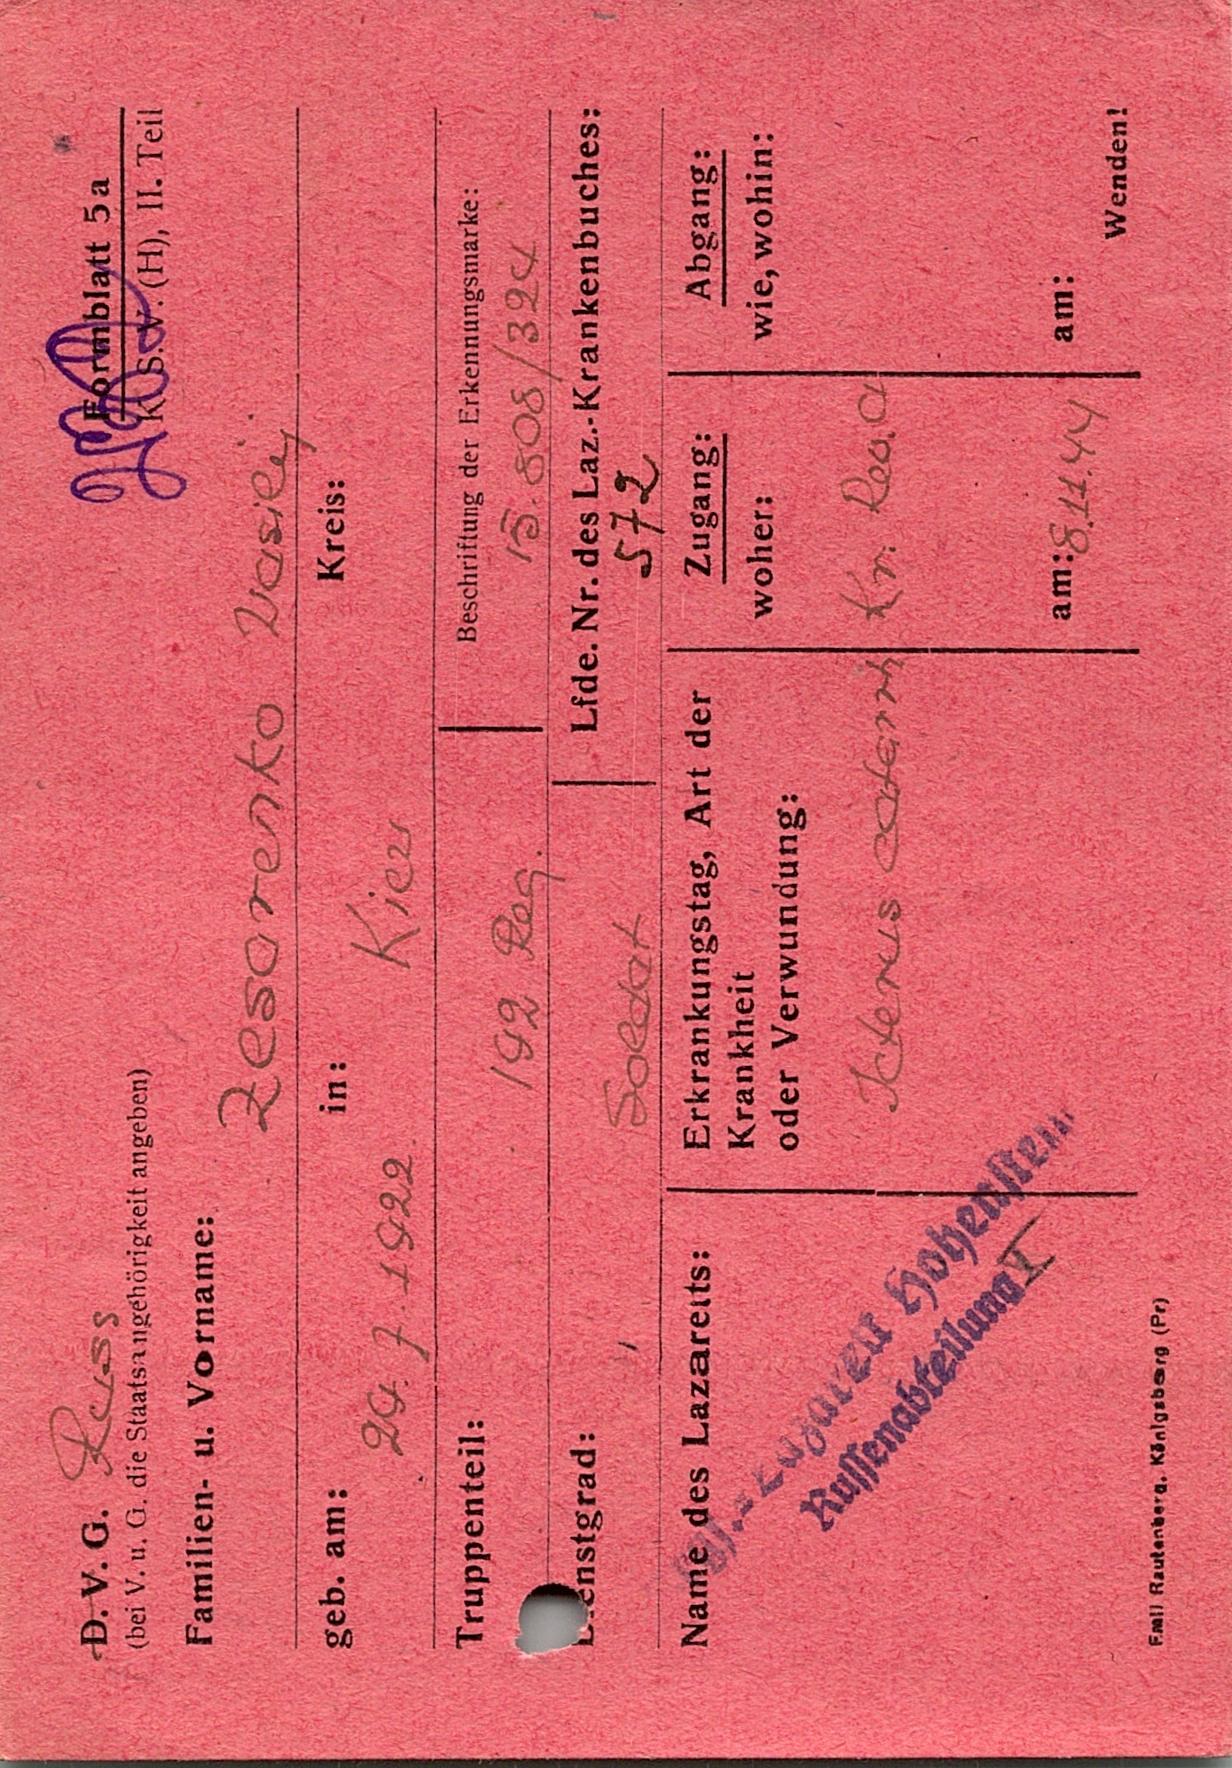 D. V. G. Russ
Formblatt 5 a
(bei V. u. G. die Staatsangehörigkeit angeben)
K. S. V. (H), II. Teil
Familien- u. Vorname:
Zesarenko Wasiley
geb. am: in: Kreis:
24. 7. 1922. Kiew
Truppenteil: Beschriftung der Erkennungsmarke:
192 Reg. 808/324
Dienstgrad: Lfde. Nr. des Laz.-Krankenbuches:
Soldat 572
Name des Lazaretts:
Lazarett Hohenstein
Russenabteilung I
Erkrankungstag, Art der
Krankheit
oder Verwundung:
Ikterus catarrh
Zugang:
woher:
Kr. Rev.
am: 8.11.44
Abgang:
wie, wohin:
am:
Wenden!
Emil Rautenberg, Königsberg (Pr)